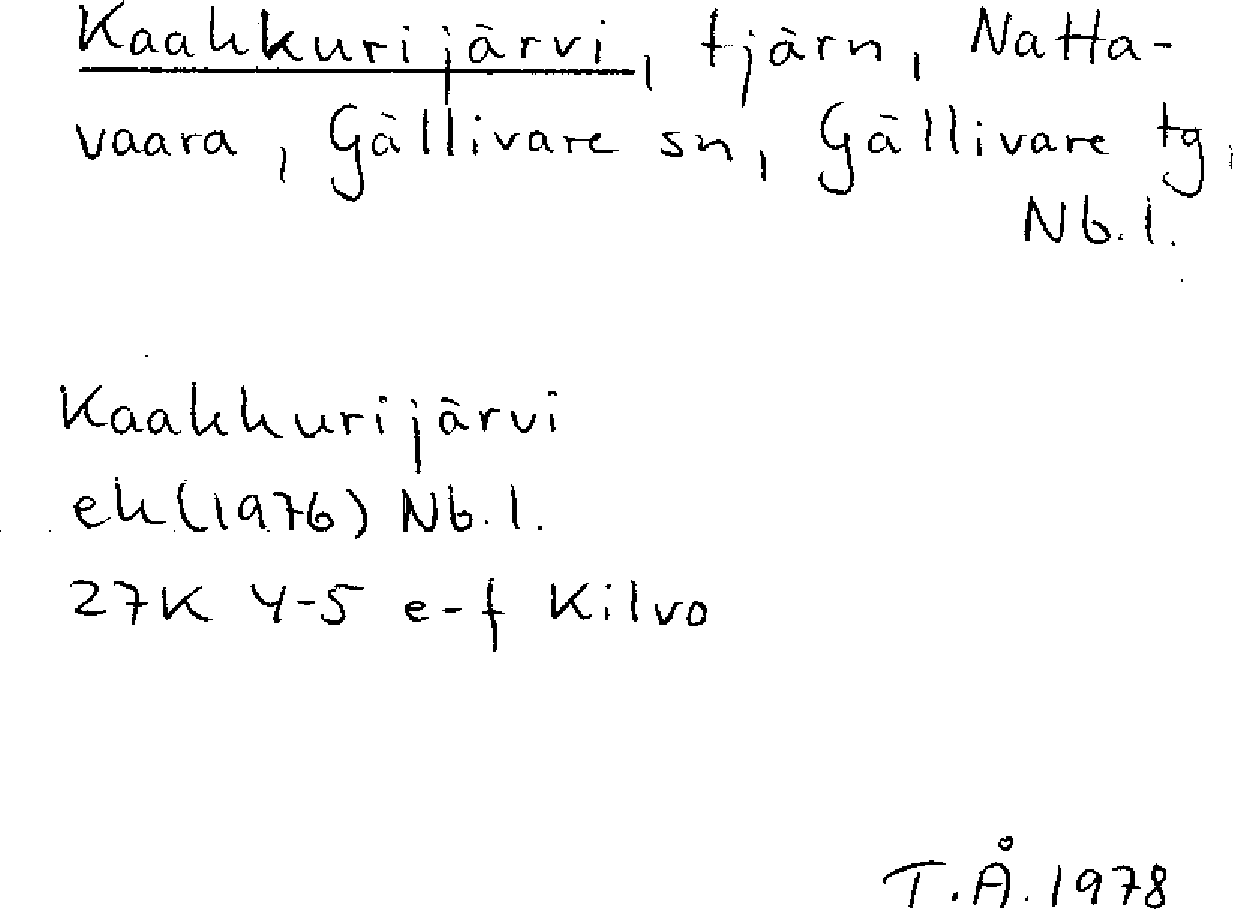 Kaakkurijärvi, tjärn, Natta-
vaara, Gällivare sn, Gällivare tg,
Nb.l.
Kaakkurijärvi
ek(1976) Nb.l.
27K 4-5 e-f Kilvo
T.Å. 1978